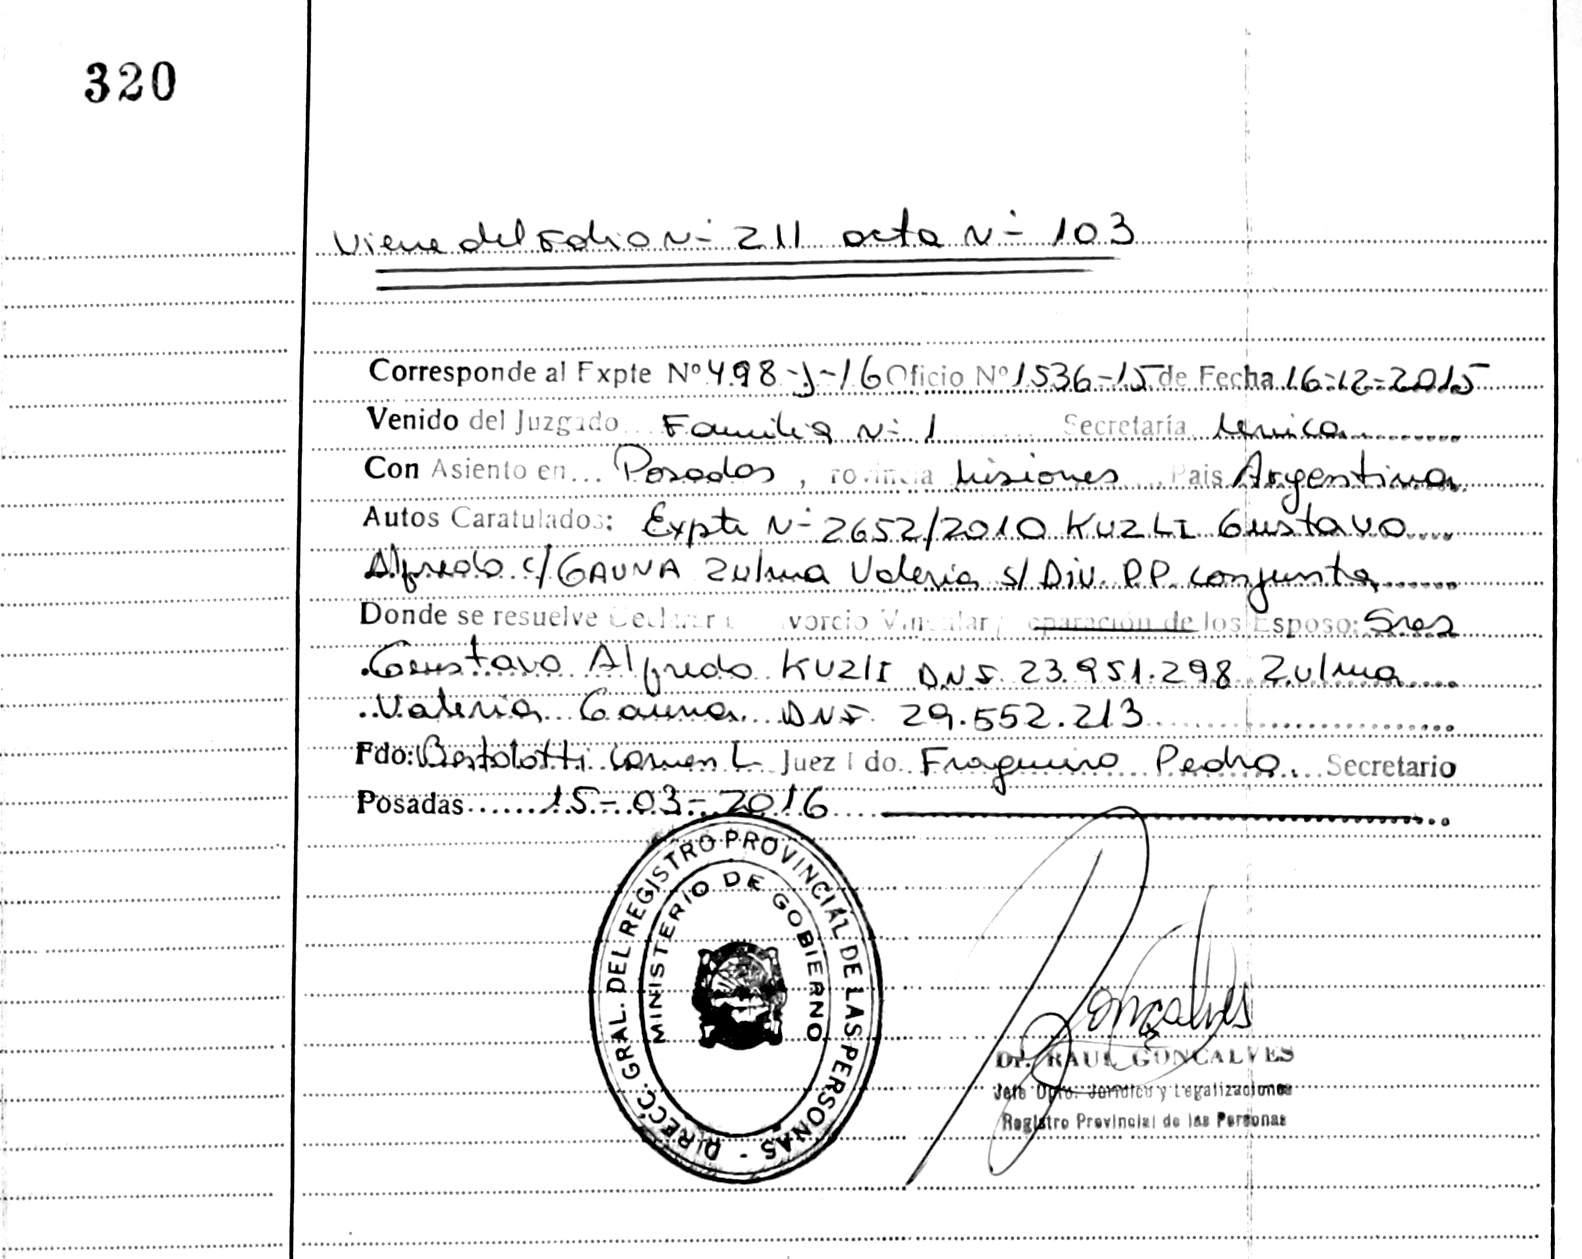 320
Viene del Folio N- 211 acta N- 103
Corresponde al Expte Nº 498-J-16 Oficio Nº 1536-15 de Fecha 16-12-2015
Venido del Juzgado Familia N- 1 Secretaría Unica
Con Asiento en... Posadas, Provincia Misiones País Argentina
Autos Caratulados: Expte N- 2652/2010 KUZLI Gustavo
Alfredo c/ GAUNA Zulma Valeria s/ DIV. P.P. conjunta
Donde se resuelve Declarar Divorcio Vincular los Esposo: Sres
Gustavo Alfredo KUZLI DNI 23.951.298 Zulma
Valeria Gauna DNI 29.552.213
Fdo: Bertolotti Carmen L Juez Fdo. Pedro. Secretario
Posadas...... 15-03-2016
DIRECC. GRAL. DEL REGISTRO PROVINCIAL DE LAS PERSONAS -
MINISTERIO DE GOBIERNO
Gonçalves
Dr. RAUL GONCALVES
Jefe Dpto. Jurídico y Legalizaciones
Registro Provincial de las Personas